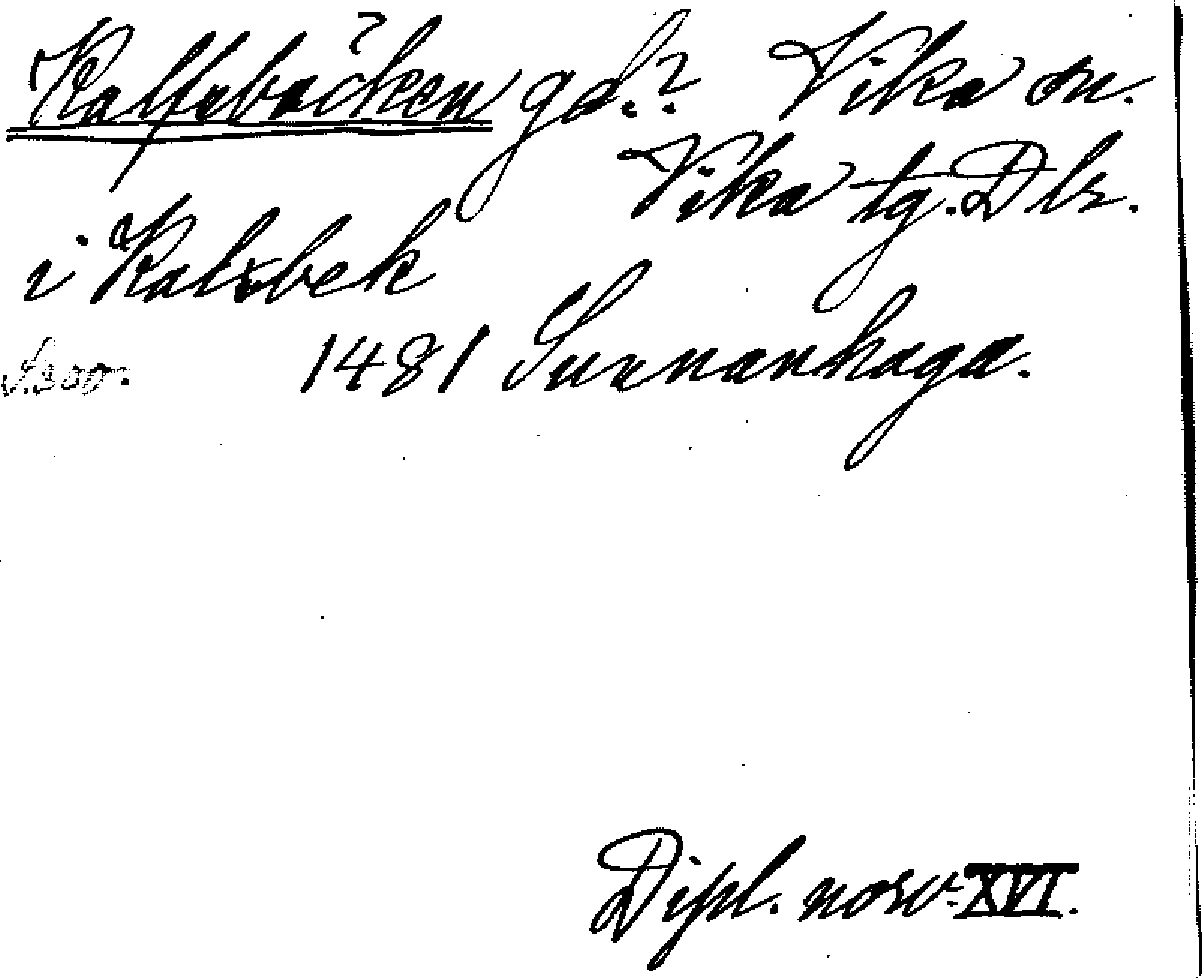 ?
Kalfsbäcken gd.? Vika sn.
Vika tg. Dlr.
i Kalzbek
1481 Sunnanhaga.
Dipl. norv. XVI.